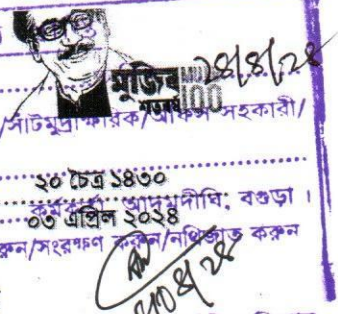 মুজিব MUJIB
শতবর্ষ 100
২৪/৪/২৪
/সাঁটমুদ্রাক্ষরিক/অফিস সহকারী/
২০ চৈত্র ১৪৩০
কর্মকর্তা, আদমদীঘি, বগুড়া ।
০৩ এপ্রিল ২০২৪
করুন/সংরক্ষণ করুন/নথিজাত করুন